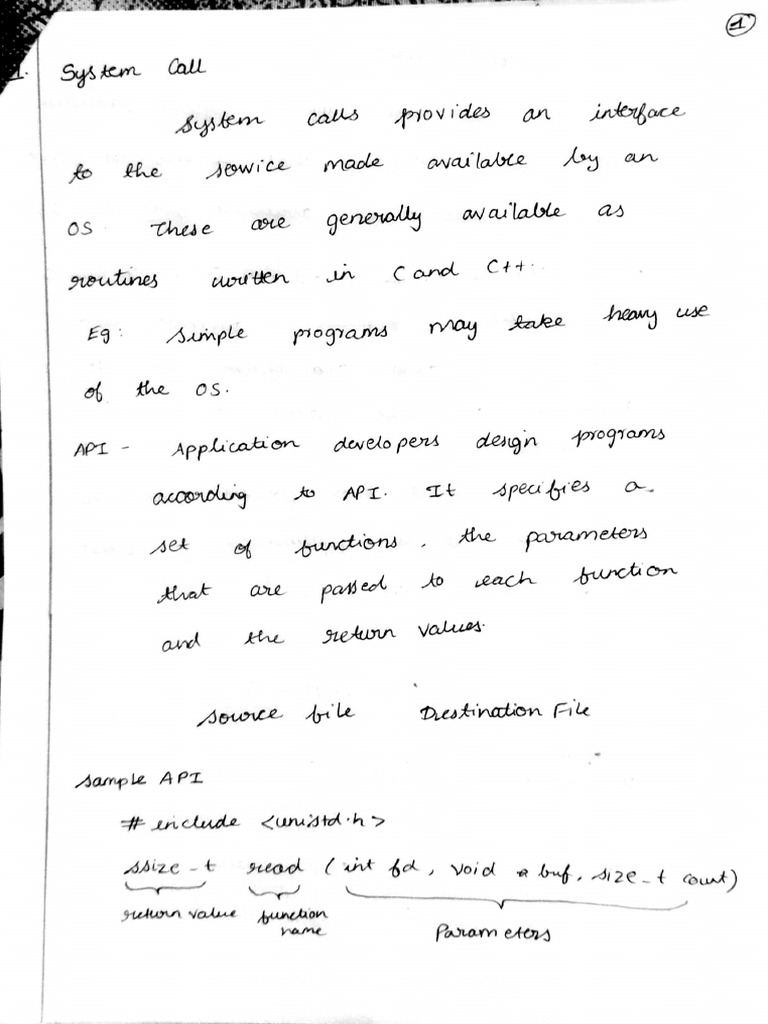 1
1. System Call
System calls provides an interface
to the service made available by an
OS These are generally available as
routines written in C and C++.
Eg: Simple programs may take heavy use
of the OS.
API - Application developers design programs
according to API. It specifies a
set of functions, the parameters
that are passed to each function
and the return values.
Source file Destination File
Sample API
# include <unistd.h>
ssize_t read (int fd, void * buf, size_t count)
return value function name Parameters